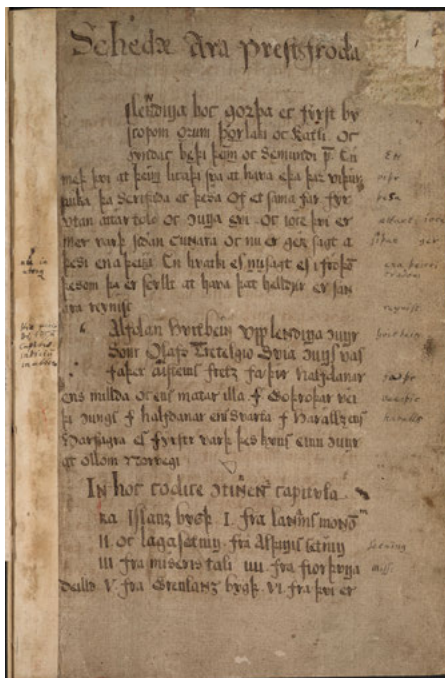 Schedæ Ara prestz froda
slendinga boc gørþa ec fyrst by
scopom orum þorlaki oc Katli. oc
syndac beþi þeim oc Semundi p. En
meþ þvi at þeim licaþi sva at hava eþa þar viþr
auka þa scrifaþa ec þesa of et sama far fyr
utan attar tolo oc  evi. oc iocc þvi er
mer varþ siþan cunnara oc nu er gerr sagt a
þesi en a þeiri. En hvatki es nusagt es i froþō
þesom þa er scyllt at hava þat helldr er san
ara reynisc
Alfdan hvitbein vpplendinga
Sonr Olafs Tretelgio Svia vas
faþer Aysteins fretz faþor halfdanar
ens millda oc ens matar illa f Goþroþar vei
þi f halfdanar ens svarta f haralldz ens
harfagra es fyrstr varþ þes kyns einn
at ollom norvegi
IN hoc codice capitula
ra Islanz bygþ. I. fra
II oc lagasetning fra Alþingis setning
III fra miseris tali IIII fra fiorþunga
deilld. V fra Grenlanz bygþ. VI. fra þvi er